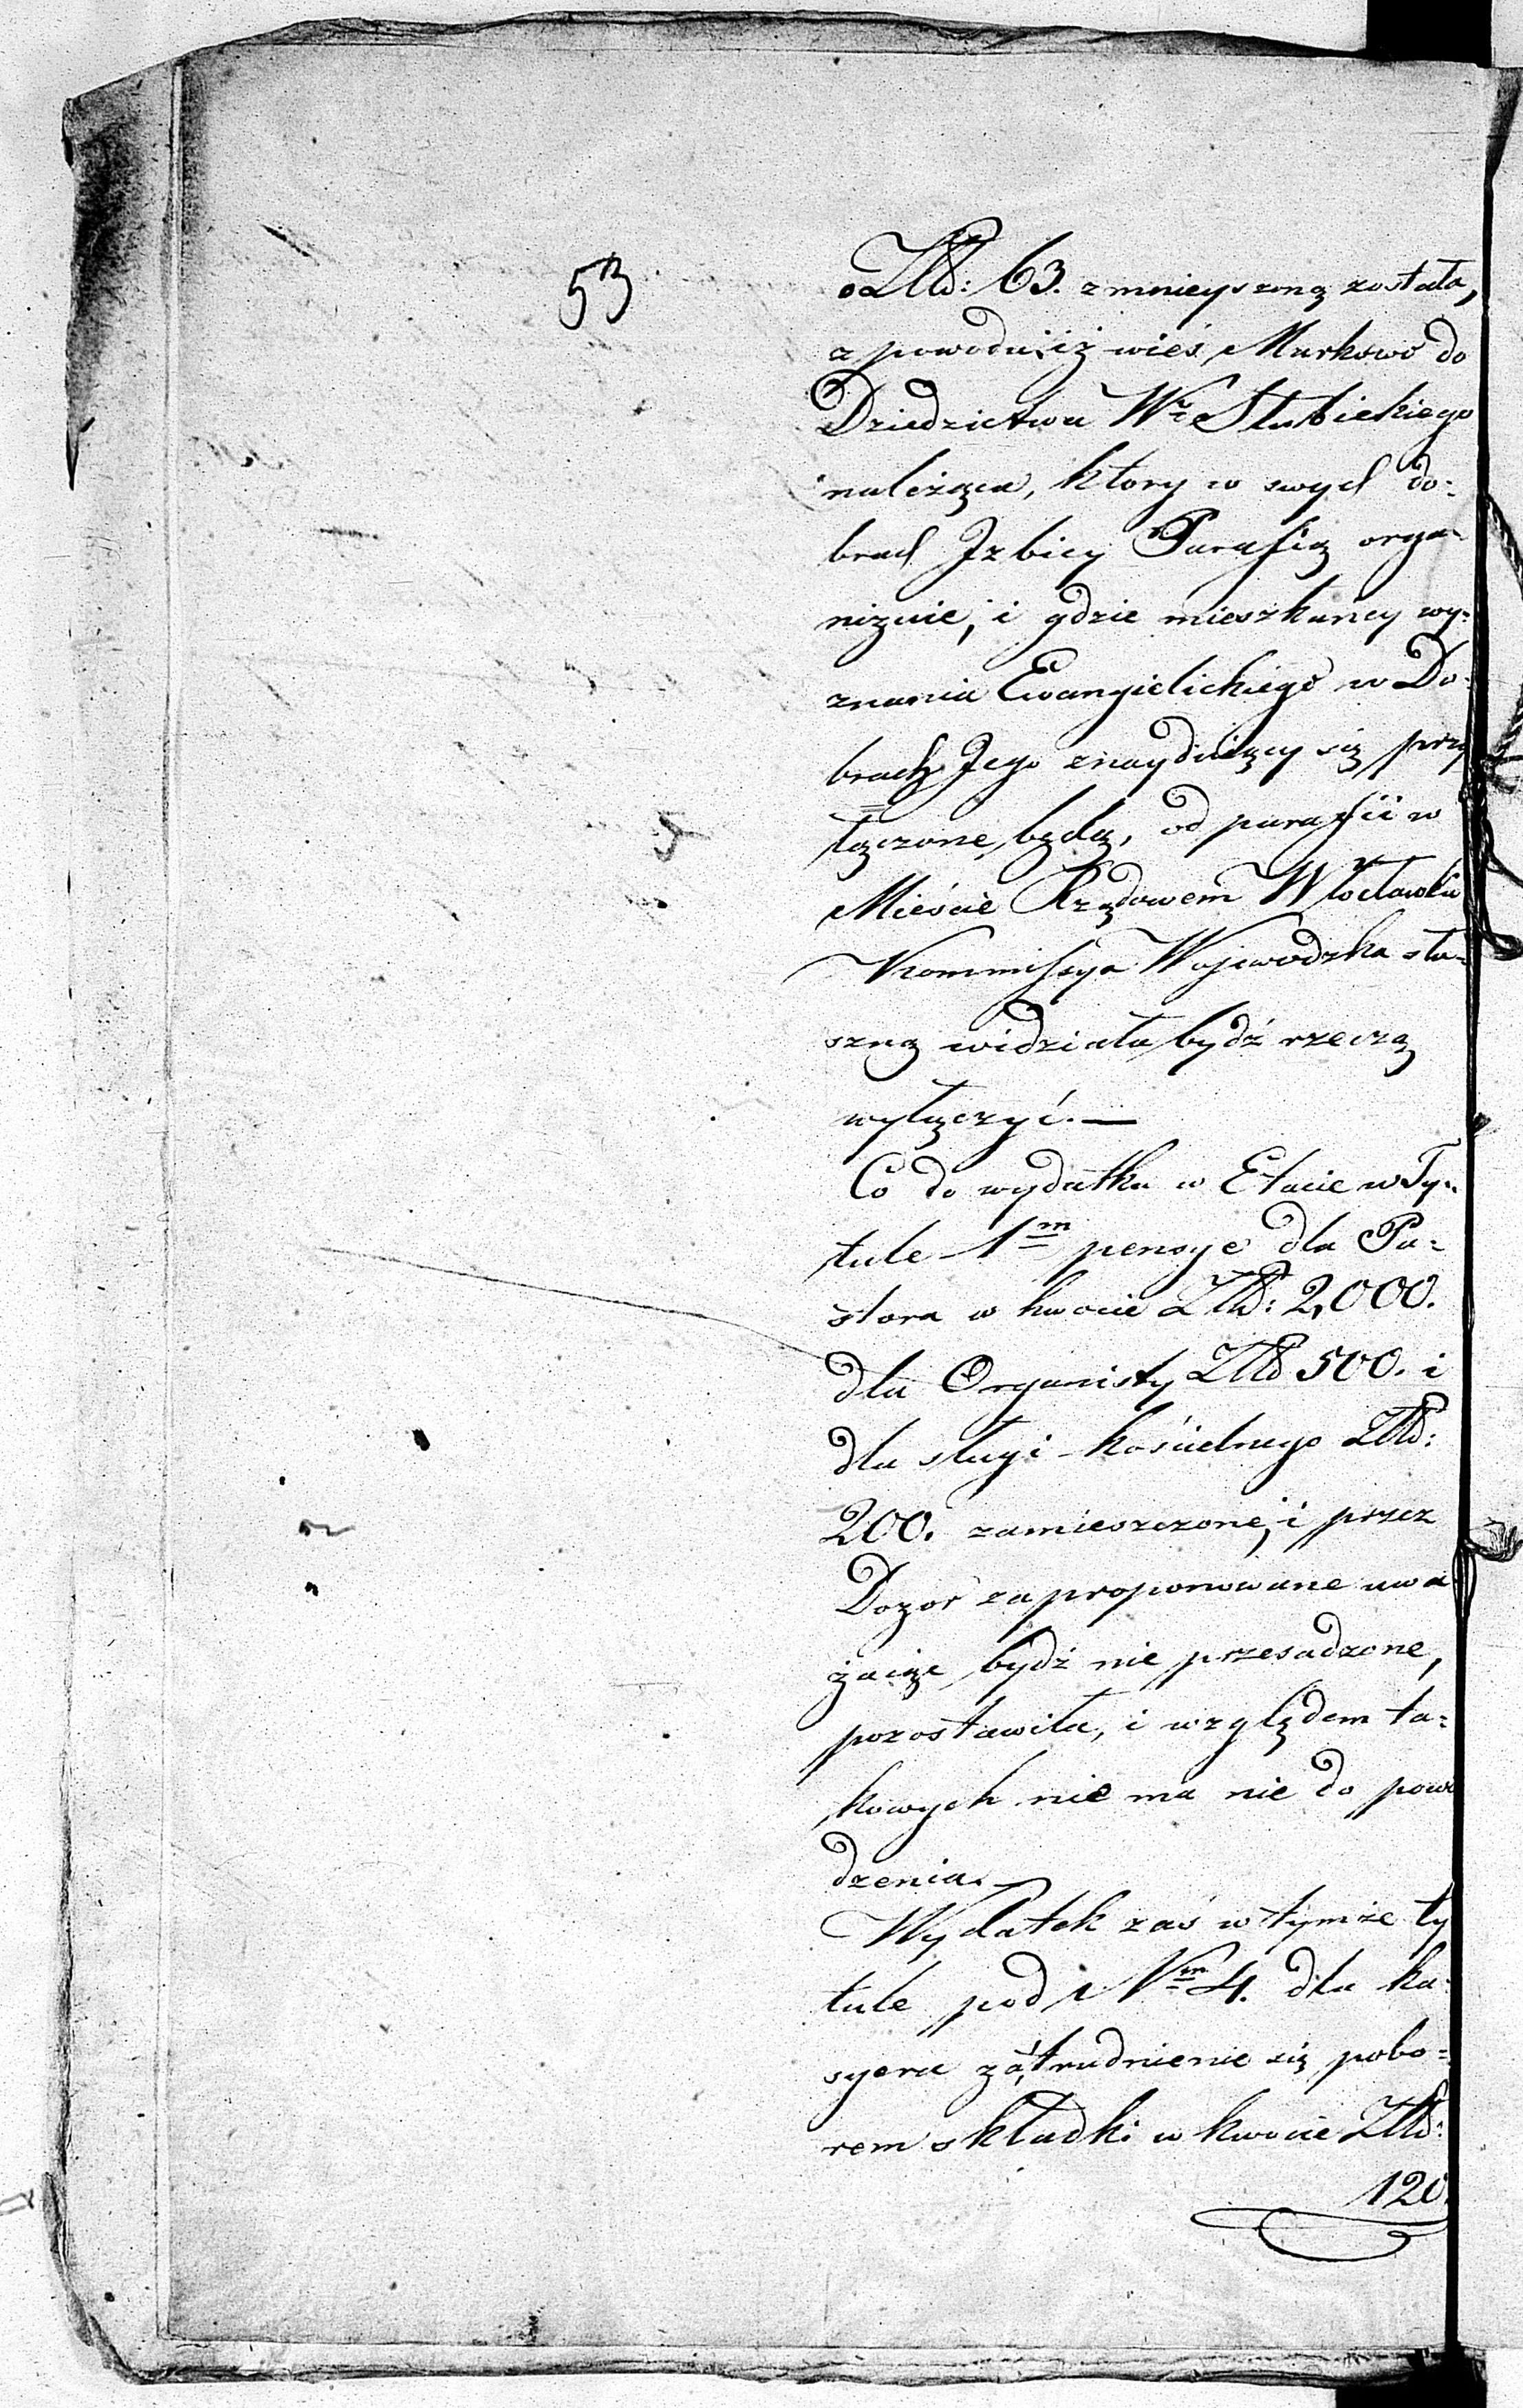 53
o Złł: 63. zmnieyszoną została,
z powodu iż wieś Murkowo do
Dziedzictwa Wo Słubickiego
należąca, ktory w swych do=
brach Jzbicy Parafią orga=
nizuie, i gdzie mieszkańcy wy=
znania Ewangielickiego w Do=
brach Jego znayduiący się przy
łączone będą, od parafii w
Mieście Rządowem Włocławku
Kommissya Wojewodzka słu=
szną widziała bydź rzeczą
wyłączyć.—
Co do wydatku w Etacie w Ty=
tule 1m pensye dla Pa=
stora w kwocie Złł: 2,000.
dla Organisty Złł 500. i
dla sługi kościelnego Złł:
200. zamieszczone, i przez
Dozor zaproponowane uwa
żaiąc bydź nie przesadzone,
pozostawiła, i względem ta=
kowych nie ma nic do powie
dzenia.
Wydatek zaś w tymże ty
tule pod Nm 4. dla ka=
syera zátrudnienie się pobo=
rem składki w kwocie Złł:
120.